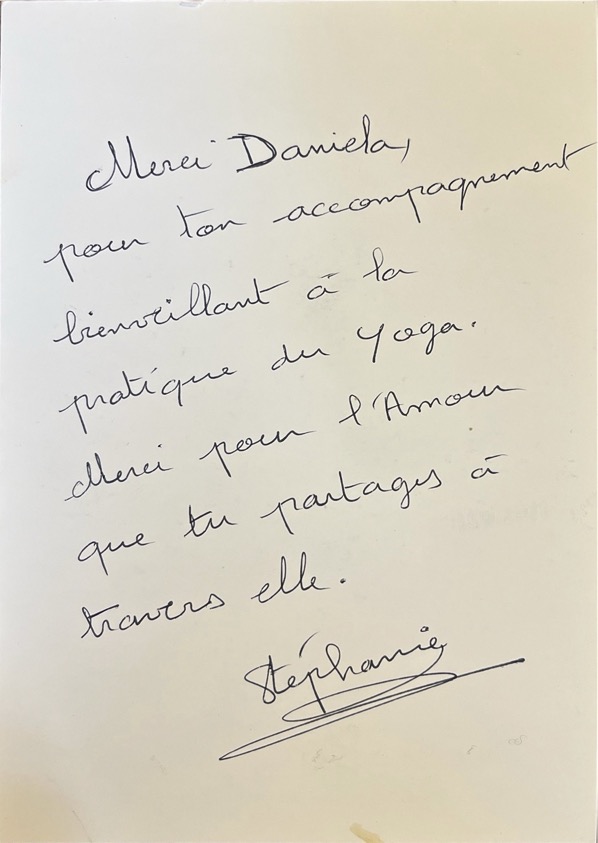 Merci Daniela,
pour ton accompagnement
bienveillant à la
pratique du Yoga.
Merci pour l'Amour
que tu partages à
travers elle.
Stéphanie